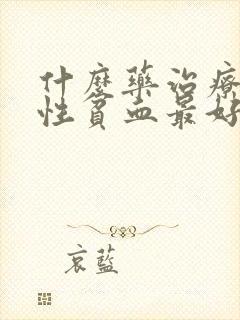 什麼藥治療
性貧血最好
哀藍